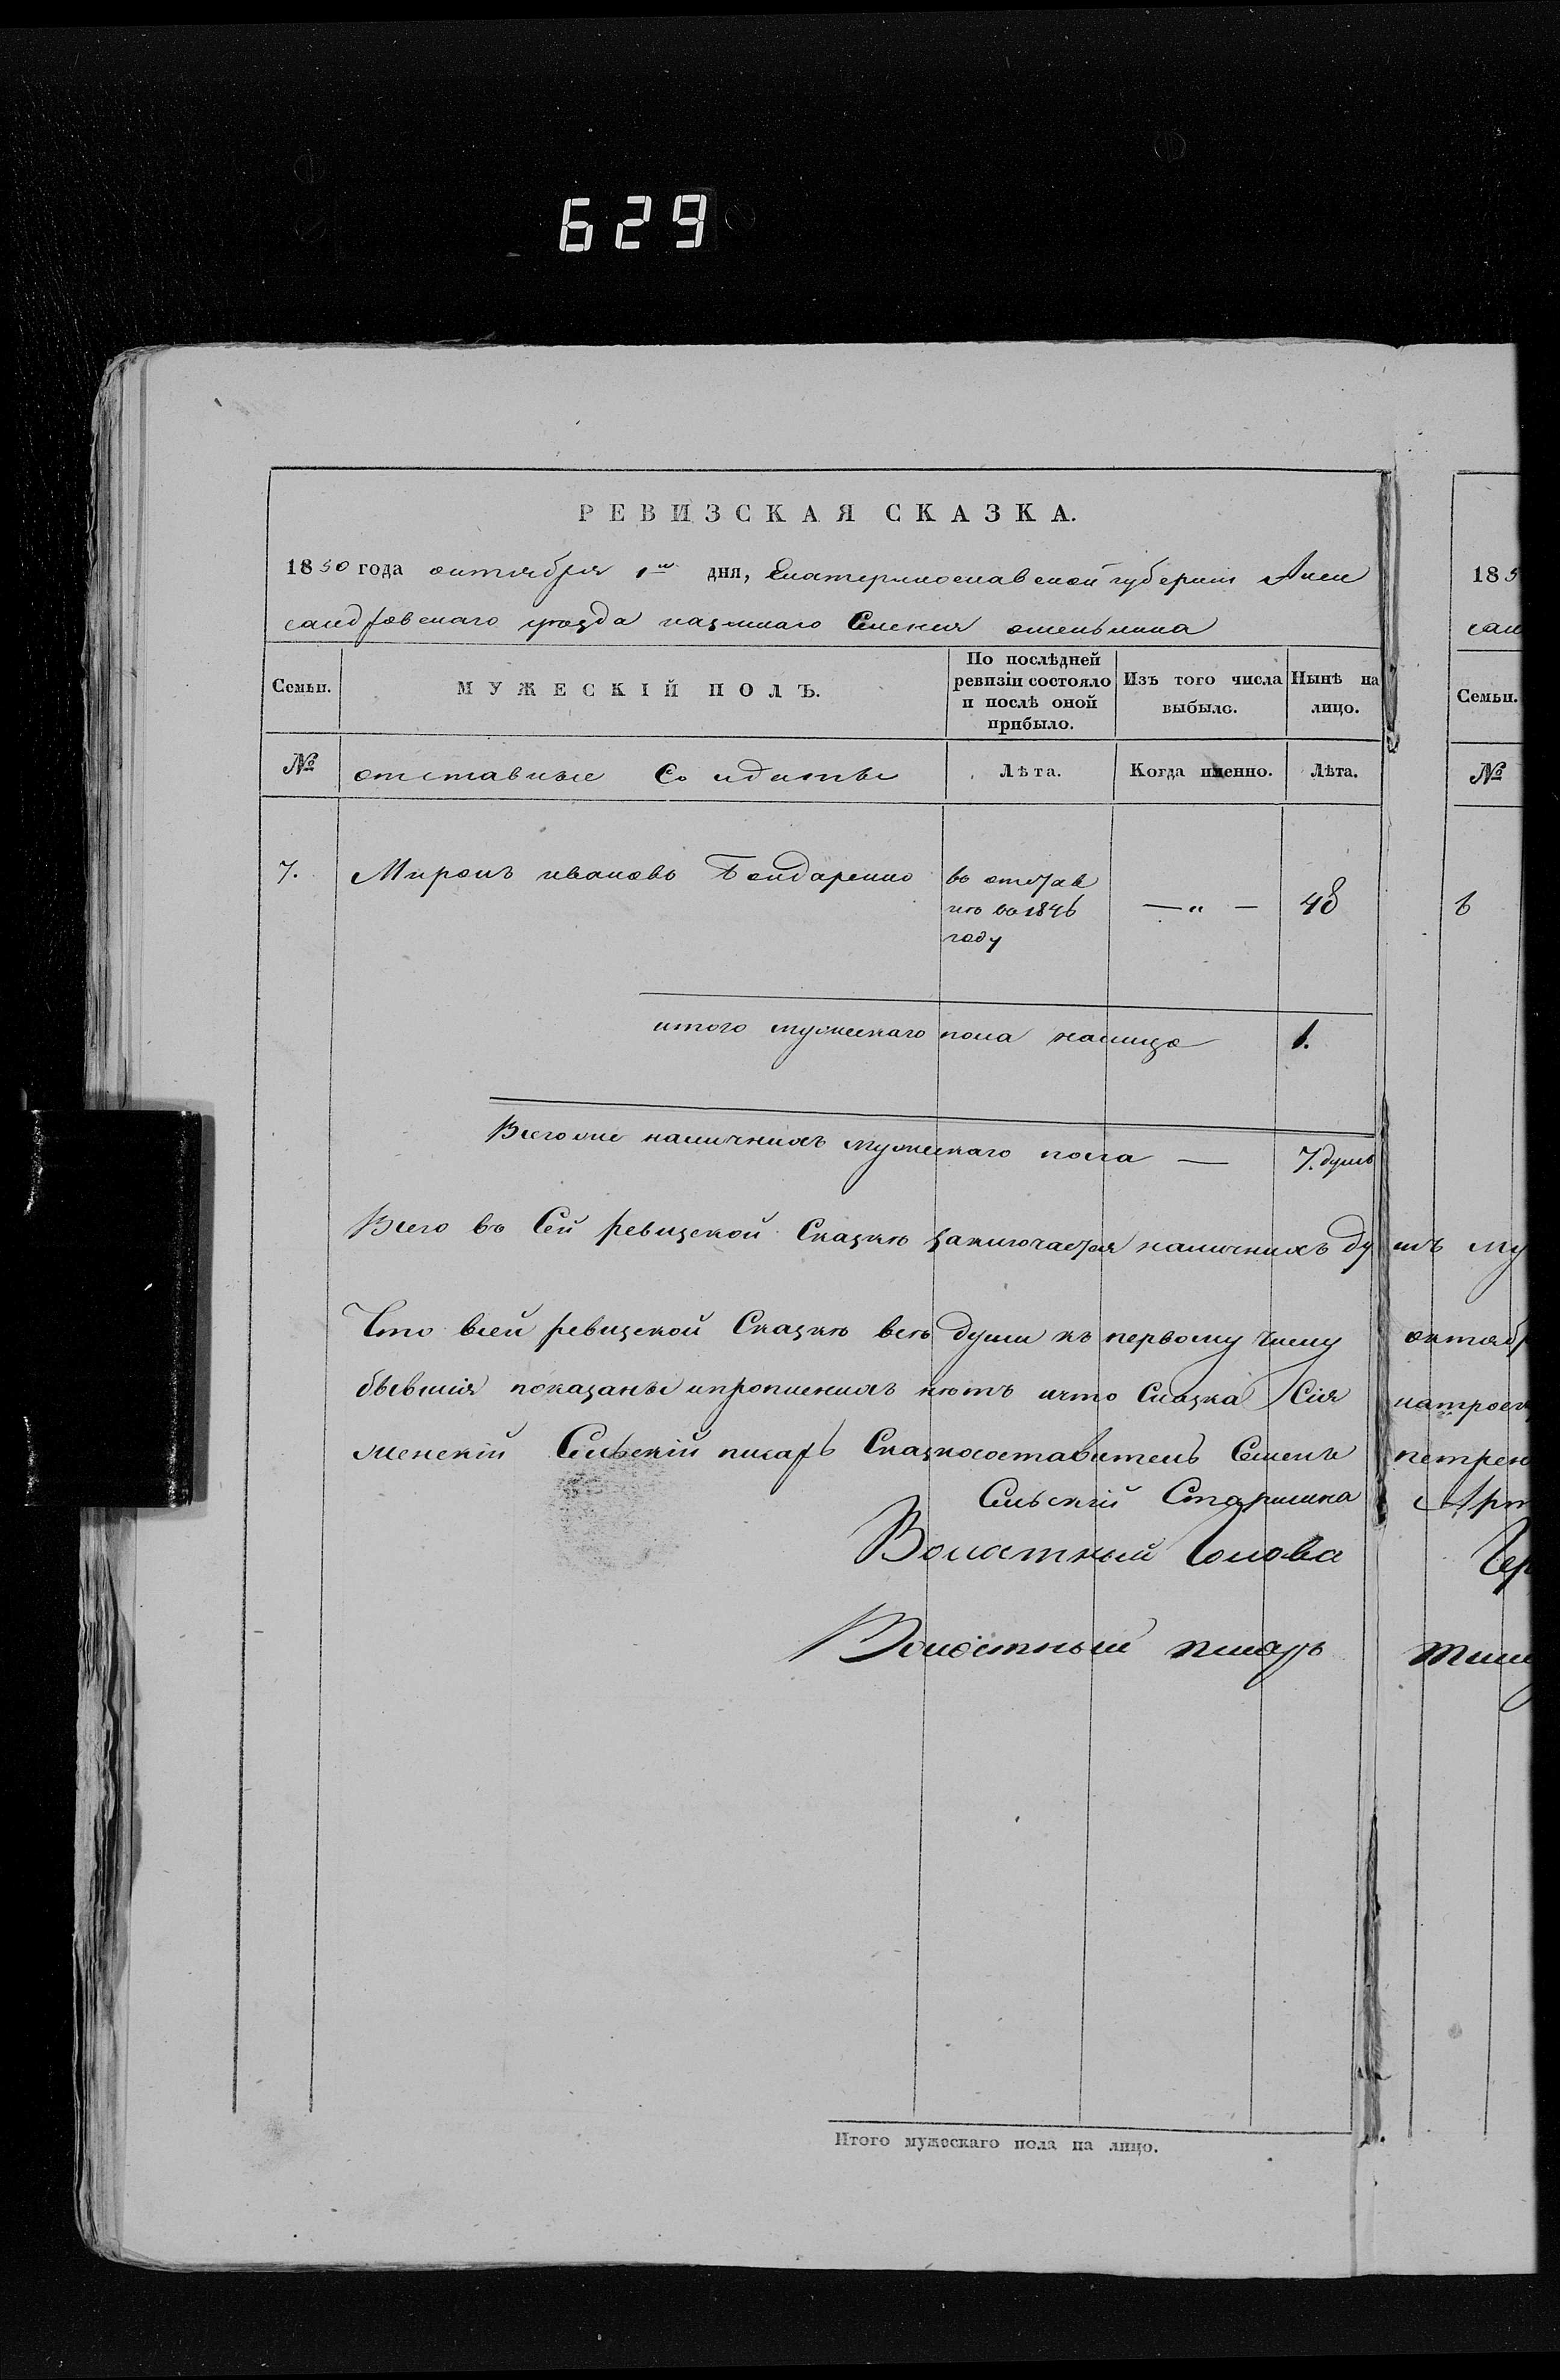 629
РЕВИЗСКАЯ СКАЗКА.
1850 года октября 1го дня, Екатеринославской губернии Алек
сандровскаго уезда казеннаго Селения
Семьи. МУЖЕСКІЙ ПОЛЪ. По послѣдней ревизіи состояло и послѣ оной прибыло. Изъ того числа выбыло. Нынѣ на лицо.
№ отставные Солдаты Лѣта. Когда именно. Лѣта.
7. Миронъ ивановъ Бондаренко въ отстав — „ — 48
кѣ въ 1846
году
итого мужескаго пола налицо 1.
Всего же наличныхъ мужескаго пола — 7. душъ
Всего въ Сей ревизской Сказкѣ заключается наличныхъ ду шъ му
Что всей ревизской Сказкѣ всѣ души къ первому числу октябр
бывшія показаны ипропшенныхъ нѣтъ ичто Сказка Сія
менскій Сельскій писарь Сказкосоставитель Семенъ петрен
Сельскій Старшина Арт
Волостный Голова Чер
Волостный писарь
Итого мужескаго пола на лицо.
185
сан
Семьи.
№
6